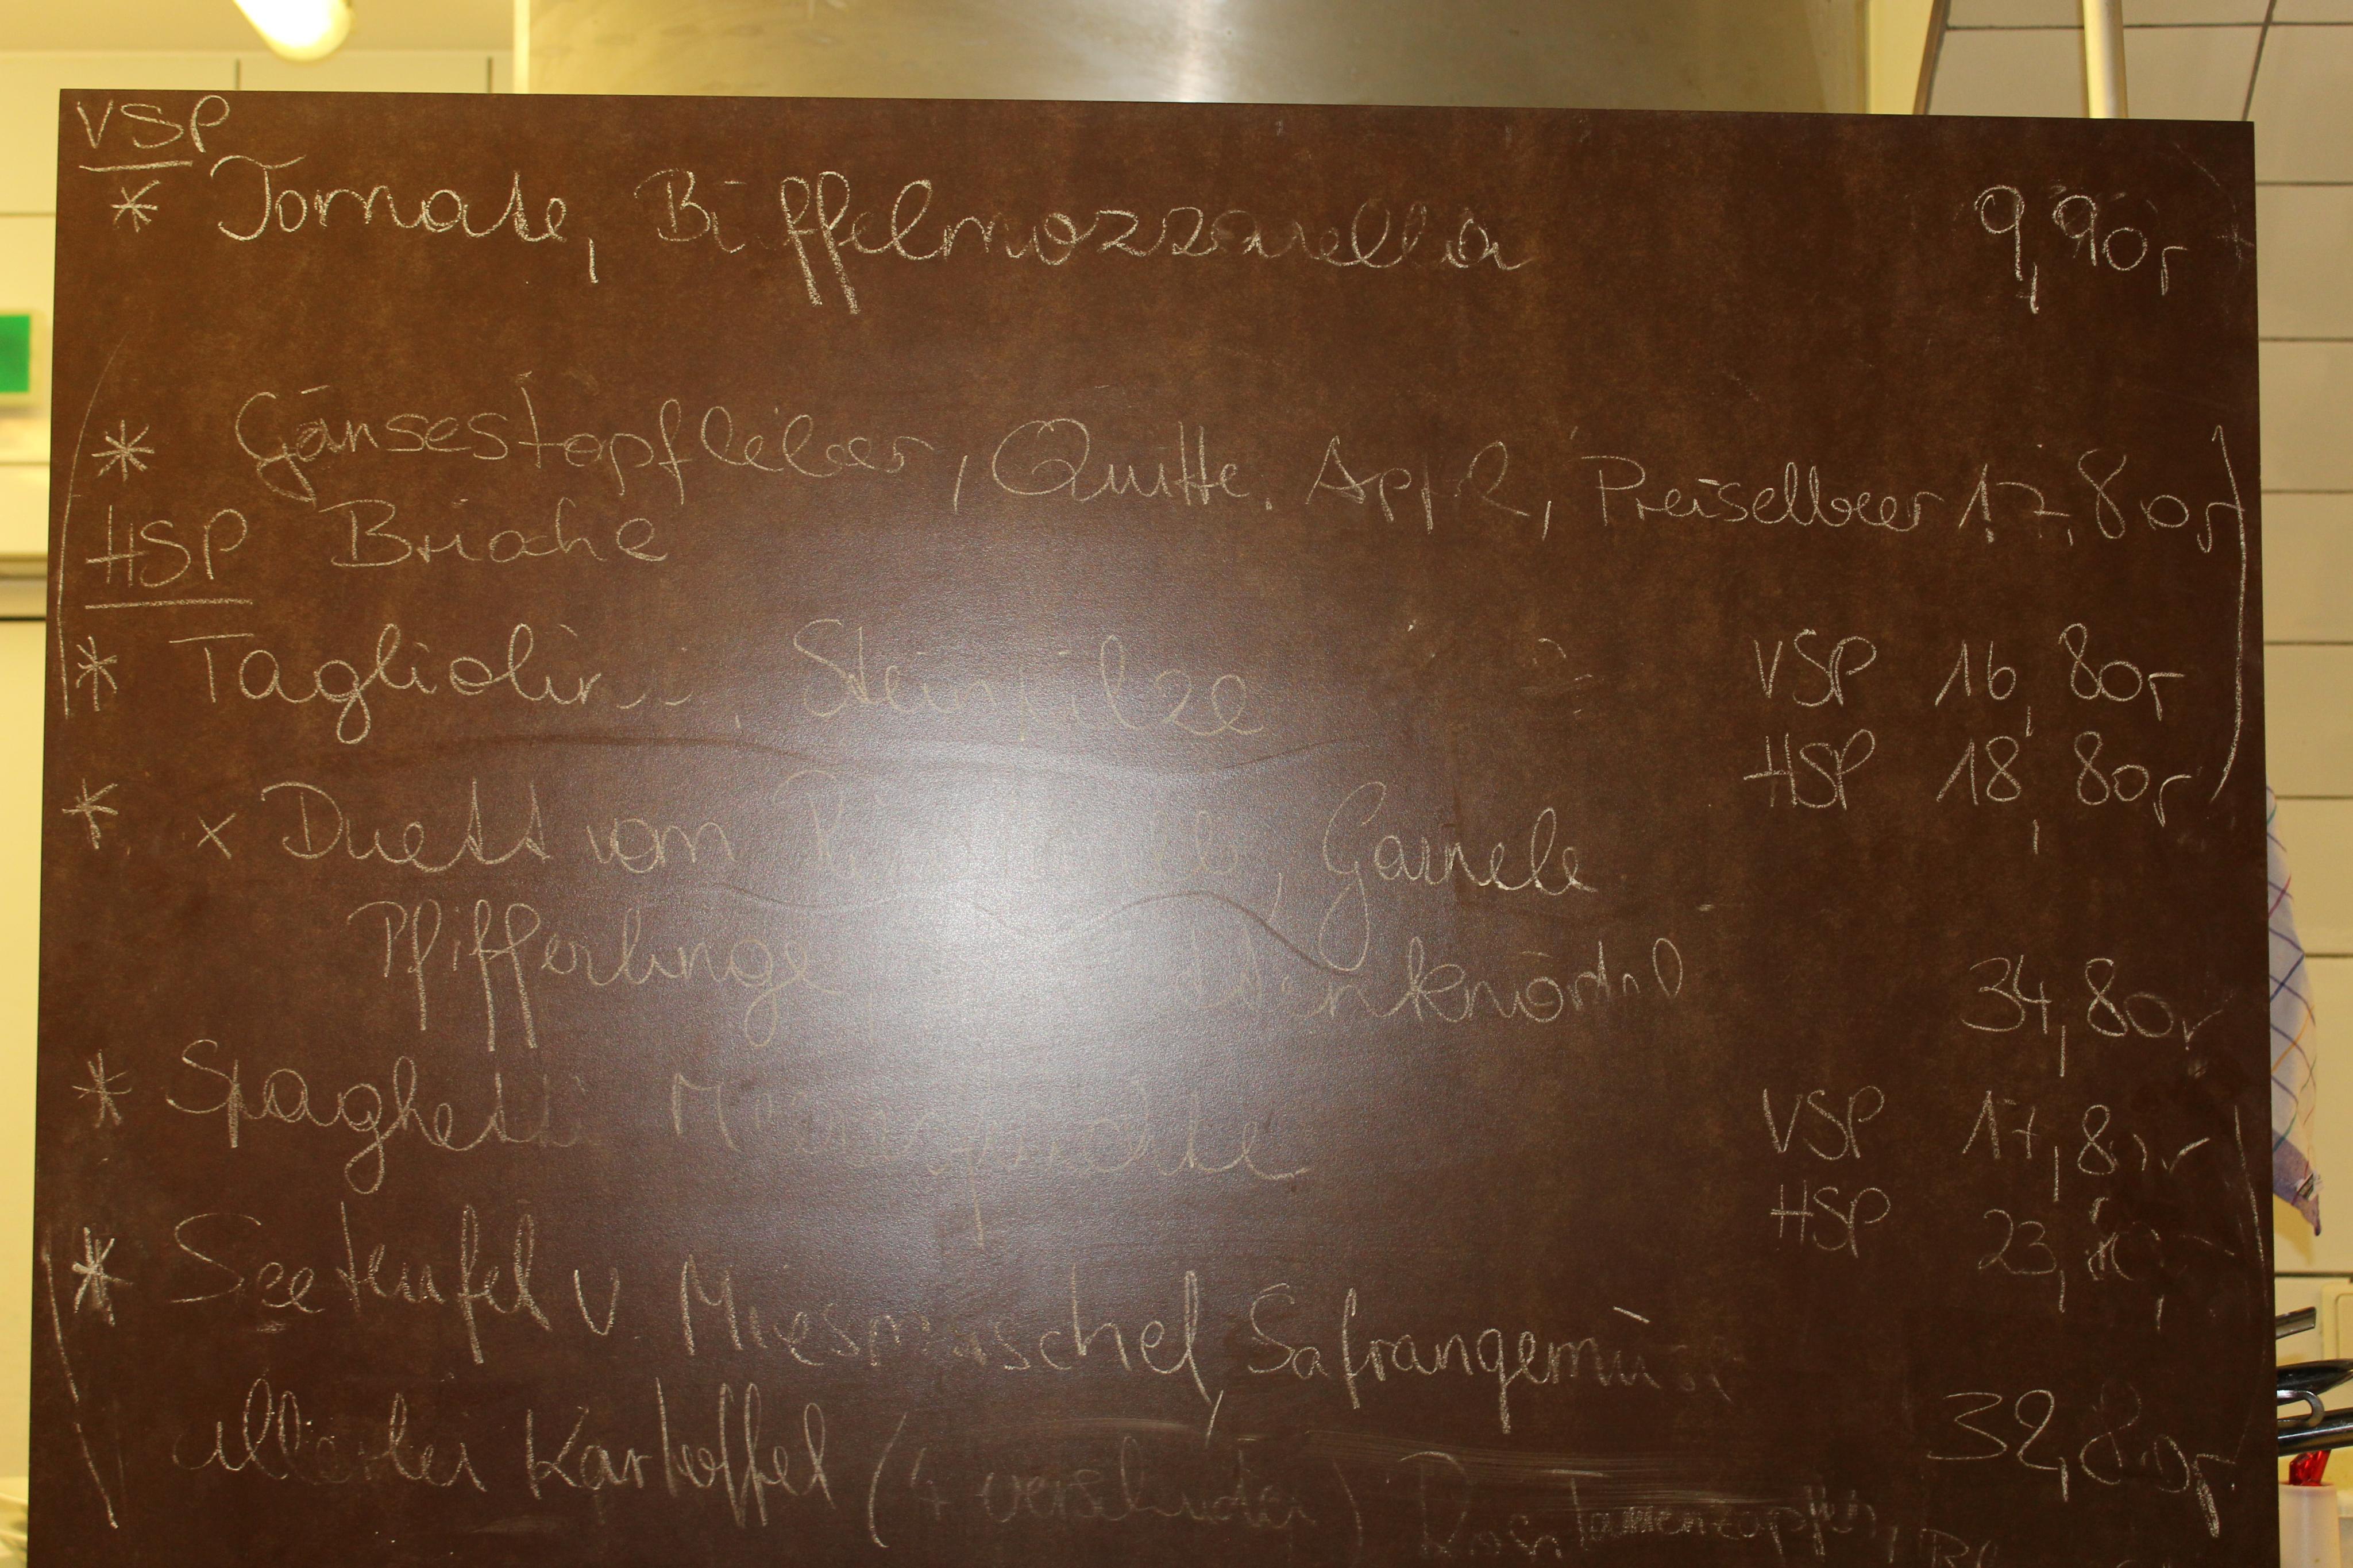 VSP
* Tomate, Büffelmozzarella 9,90,-
* Gänsestopfleber, Quitte, Apfel, Preiselbeer 17,80,-
HSP Brioche
* Tagliolini, Steinpilze VSP 16,80,-
HSP 18,80,-
* x Duett vom Garnele
Pfifferlinge, 34,80,-
* Spaghetti Meeresfrüchte VSP 17,80,-
HSP 23,80,-
* Seeteufel v Miesmuschel, Safrangemüse
allerlei Kartoffel (4 verschiedene) 32,80,-